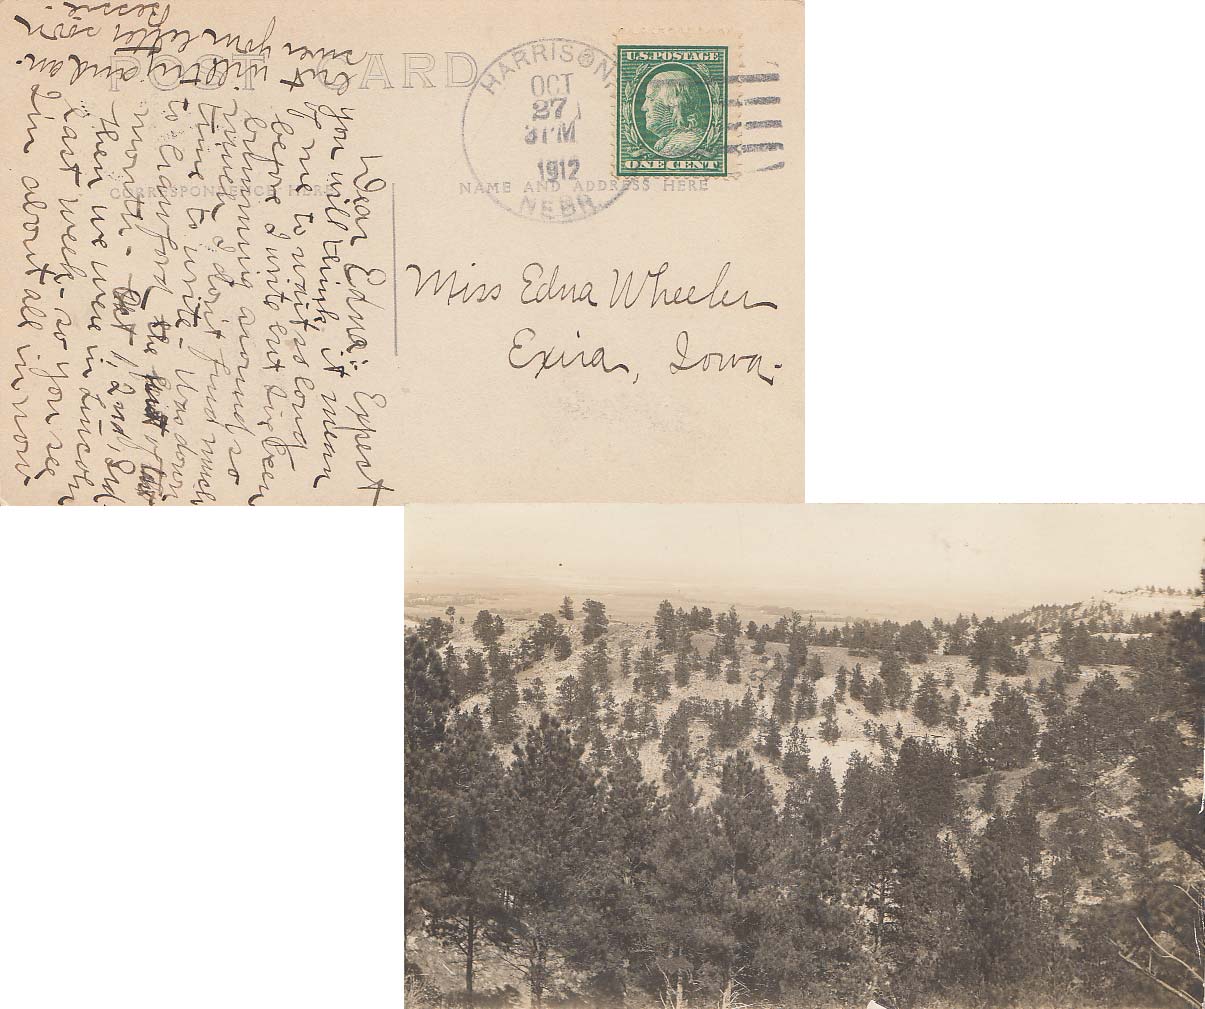 POST CARD
CORRESPONDENCE HERE
NAME AND ADDRESS HERE
HARRISON,
OCT
27
3 PM
1912
NEBR.
U.S. POSTAGE
ONE CENT
Miss Edna Wheeler
Exira, Iowa.
Dear Edna: Expect
you will think it mean
of me to wait so long
before I write but I've been
bumming around so
much I don't find much
time to write - Was down
to Crawford the last of
month - 1, 2nd, 3rd
then we were in Lincoln
last week - so you see
I'm about all in now
but will try and an-
swer your letter soon
Bessie.